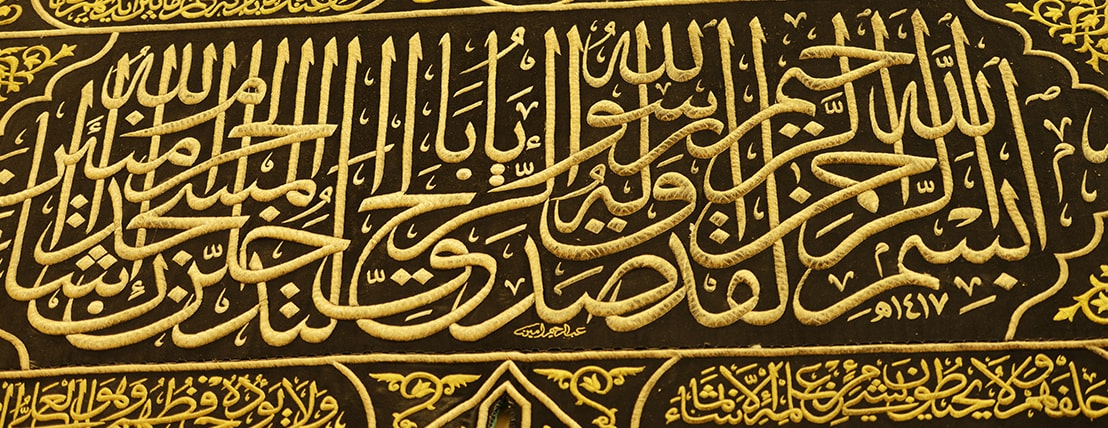 بسم الله الرحمن الرحيم لقد صدق الله رسوله الرءيا بالحق لتدخلن المسجد الحرام إن شاء الله ءامنين
١٤١٧هـ
عبدالرحيم امين
خلفهم ولا يحيطون بشيء من علمه إلا بما شاء
ولا يؤده حفظهما وهو العلي